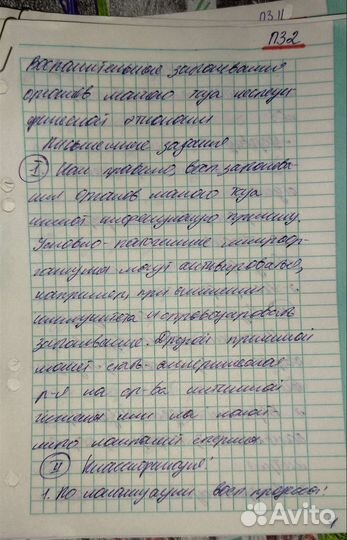 ПЗ 11
ПЗ-2
Воспалительные заболевания
органов малого таза неспеци-
фической этиологии
Письменное задание
I Как правило, восп. заболева-
ния органов малого таза
имеют инфекционную причину.
Условно-патогенные микроор-
ганизмы могут активироваться,
например, при снижении
иммунитета и спровоцировать
заболевание. Другой причиной
может стать аллергическая
р-я на ср-ва интимной
гигиены или на
II Классификация:
1. По локализации восп. процесса:
1
Avito